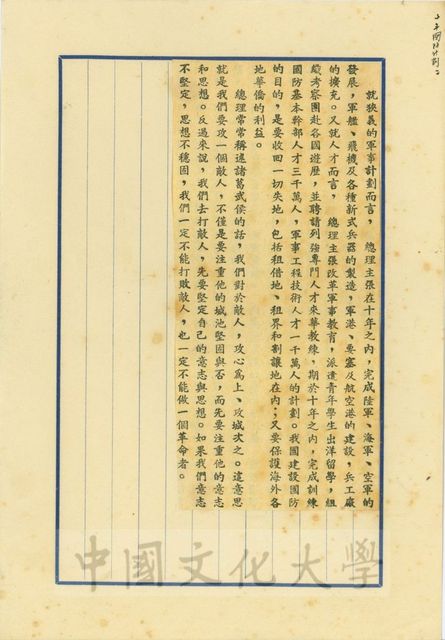 就狹義的軍事計劃而言，　總理主張在十年之內，完成陸軍、海軍、空軍的
發展，軍艦、飛機及各種新式兵器的製造，軍港、要塞及航空港的建設，兵工廠
的擴充。又就人才而言，　總理主張改革軍事教育，派遣青年學生出洋留學，組
織考察團赴各國遊歷，並聘請列強專門人才來華教練，期於十年之內，完成訓練
國防基本幹部人才三千萬人，軍事工程技術人才一千萬人的計劃。我國建設國防
的目的，是要收回一切失地，包括租借地、租界和割讓地在內；又要保護海外各
地華僑的利益。
總理常常稱述諸葛武侯的話，我們對於敵人，攻心為上、攻城次之。這意思
就是我們要攻一個敵人，不僅是要注重他的城池堅固與否，而先要注重他的意志
和思想。反過來說，我們去打敵人，先要堅定自己的意志與思想。如果我們意志
不堅定，思想不穩固，我們一定不能打敗敵人，也一定不能做一個革命者。
中國文化大學